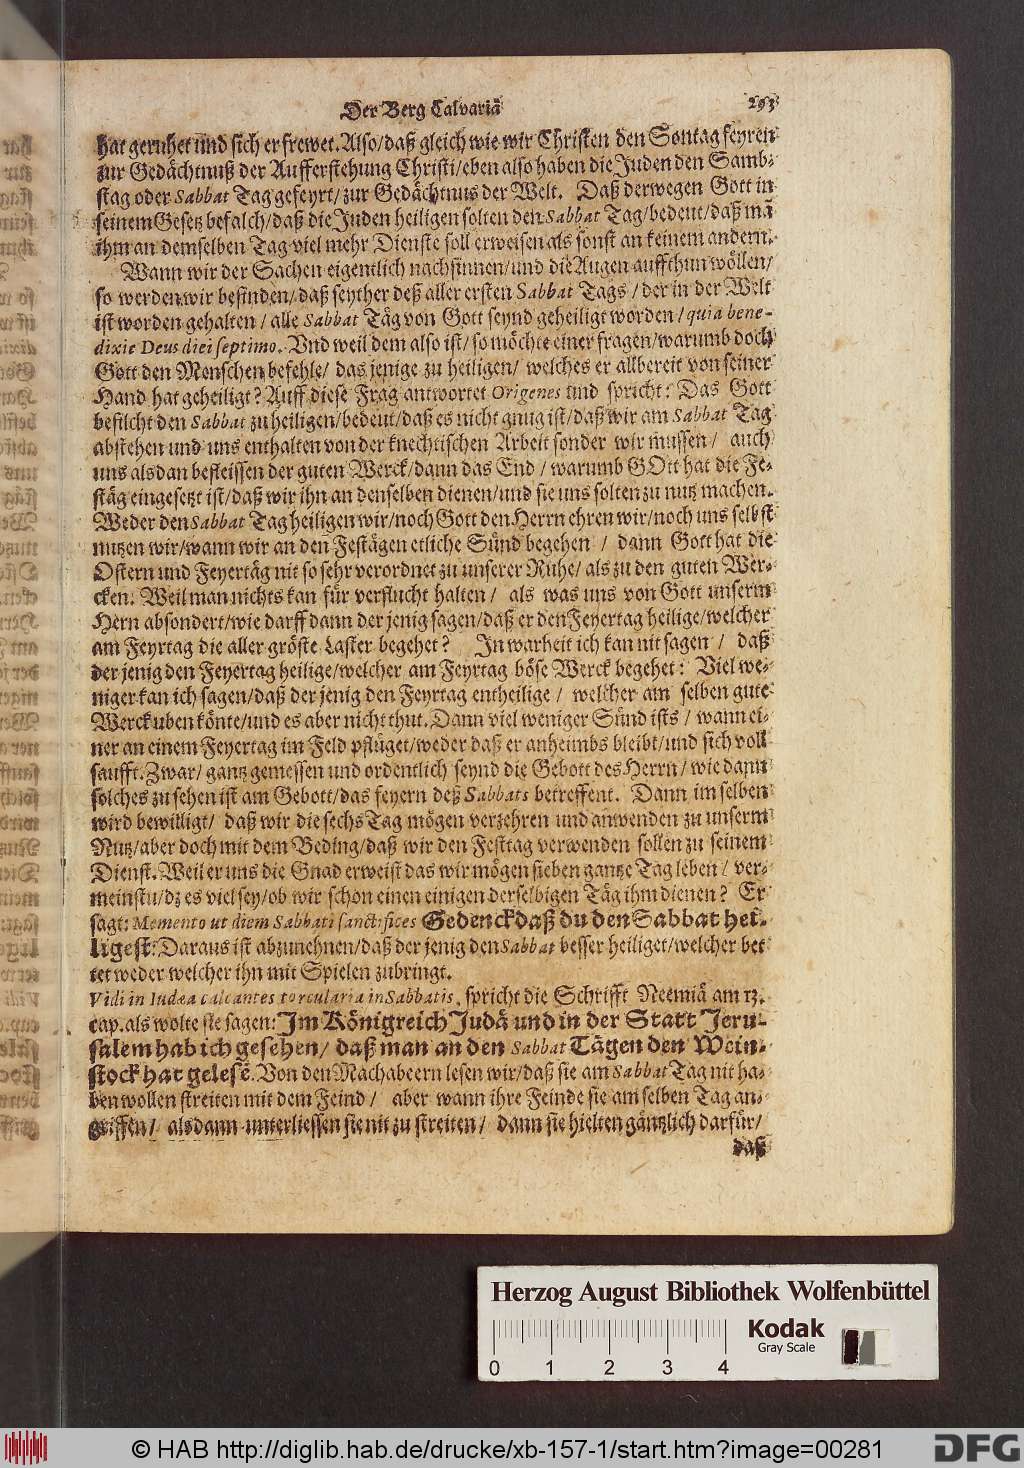 Der Berg Calvariȧ 293
hat geruhet und sich erfrewet. Also/daß gleich wie wir Christen den Sontag feyren
zur Gedächtnuß der Aufferstehung Christi/eben also haben die Juden den Samb-
stag oder Sabbat Tag gefeyrt/zur Gedächtnus der Welt. Daß derwegen Gott in
seinem Gesetz befalch/daß die Juden heiligen solten den Sabbat Tag/bedeut/daß mā
ihm an demselben Tag viel mehr Dienste soll erweisen als sonst an keinem andern.
Wann wir der Sachen eigentlich nachsinnen/und die Augen auffthun wöllen/
so werden wir befinden/daß seyther deß aller ersten Sabbat Tags/der in der Welt
ist worden gehalten/alle Sabbat Täg von Gott seynd geheiligt worden/quia bene-
dixie Deus diei septimo. Und weil dem also ist/so möchte einer fragen/warumb doch
Gott den Menschen befehle/das jenige zu heiligen/welches er allbereit von seiner
Hand hat geheiligt? Auff diese Frag antwortet Origenes und spricht: Das Gott
befilcht den Sabbat zu heiligen/bedeut/daß es nicht gnug ist/daß wir am Sabbat Tag
abstehen und uns enthalten von der knechtischen Arbeit sonder wir mussen/auch
uns alsdan befleissen der guten Werck/dann das End/warumb GOtt hat die Fe-
stäg eingesetzt ist/daß wir ihn an denselben dienen/und sie uns solten zu nutz machen.
Weder den Sabbat Tag heiligen wir/noch Gott den Herrn ehren wir/noch uns selbst
nutzen wir/wann wir an den Festägen etliche Sünd begehen/dann Gott hat die
Ostern und Feyertäg nit so sehr verordnet zu unserer Ruhe/als zu den guten Wer-
cken. Weil man nichts kan für verflucht halten/als was uns von Gott unserm
Hern absondert/wie darff dann der jenig sagen/daß er den Feyertag heilige/welcher
am Feyrtag die aller gröste Laster begehet? In warheit ich kan nit sagen/daß
der jenig den Feyertag heilige/welcher am Feyrtag böse Werck begehet: Viel we-
niger kan ich sagen/daß der jenig den Feyrtag entheilige/welcher am selben gute
Werck uben könte/und es aber nicht thut. Dann viel weniger Sünd ists/wann ei-
ner an einem Feyertag im Feld pflüget/weder daß er anheimbs bleibt/und sich voll
saufft. Zwar/gantz gemessen und ordentlich seynd die Gebott des Herrn/wie dann
solches zu sehen ist am Gebott/das feyern deß Sabbats betreffent. Dann im selben
wird bewilligt/daß wir die sechs Tag mögen verzehren und anwenden zu unserm
Nutz/aber doch mit dem Beding/daß wir den Festtag verwenden sollen zu seinem
Dienst. Weil er uns die Gnad erweist das wir mögen sieben gantze Tag leben/ver-
meinstu/dz es viel sey/ob wir schon einen einigen derselbigen Täg ihm dienen? Er
sagt: Memento ut diem Sabbati sanctifices Gedenck daß du den Sabbat hei-
ligest: Daraus ist abzunehnen/daß der jenig den Sabbat besser heiliget/welcher bet
tet weder welcher ihn mit Spielen zubringt.
Vidi in Iudæa calcantes torcularia in Sabbatis, spricht die Schrifft Neemiä am 13.
cap. als wolte sie sagen: Im Königreich Judä und in der Statt Jeru-
salem hab ich gesehen/daß man an den Sabbat Tägen den Wein-
stock hat gelesē. Von den Machabeern lesen wir/daß sie am Sabbat Tag nit ha-
ben wollen streiten mit dem Feind/aber wann ihre Feinde sie am selben Tag an-
griffen/alsdann unterliessen sie nit zu streiten/dann sie hielten gäntzlich darfür/
daß
Herzog August Bibliothek Wolfenbüttel
Kodak
Gray Scale
0 1 2 3 4
© HAB http://diglib.hab.de/drucke/xb-157-1/start.htm?image=00281
DFG